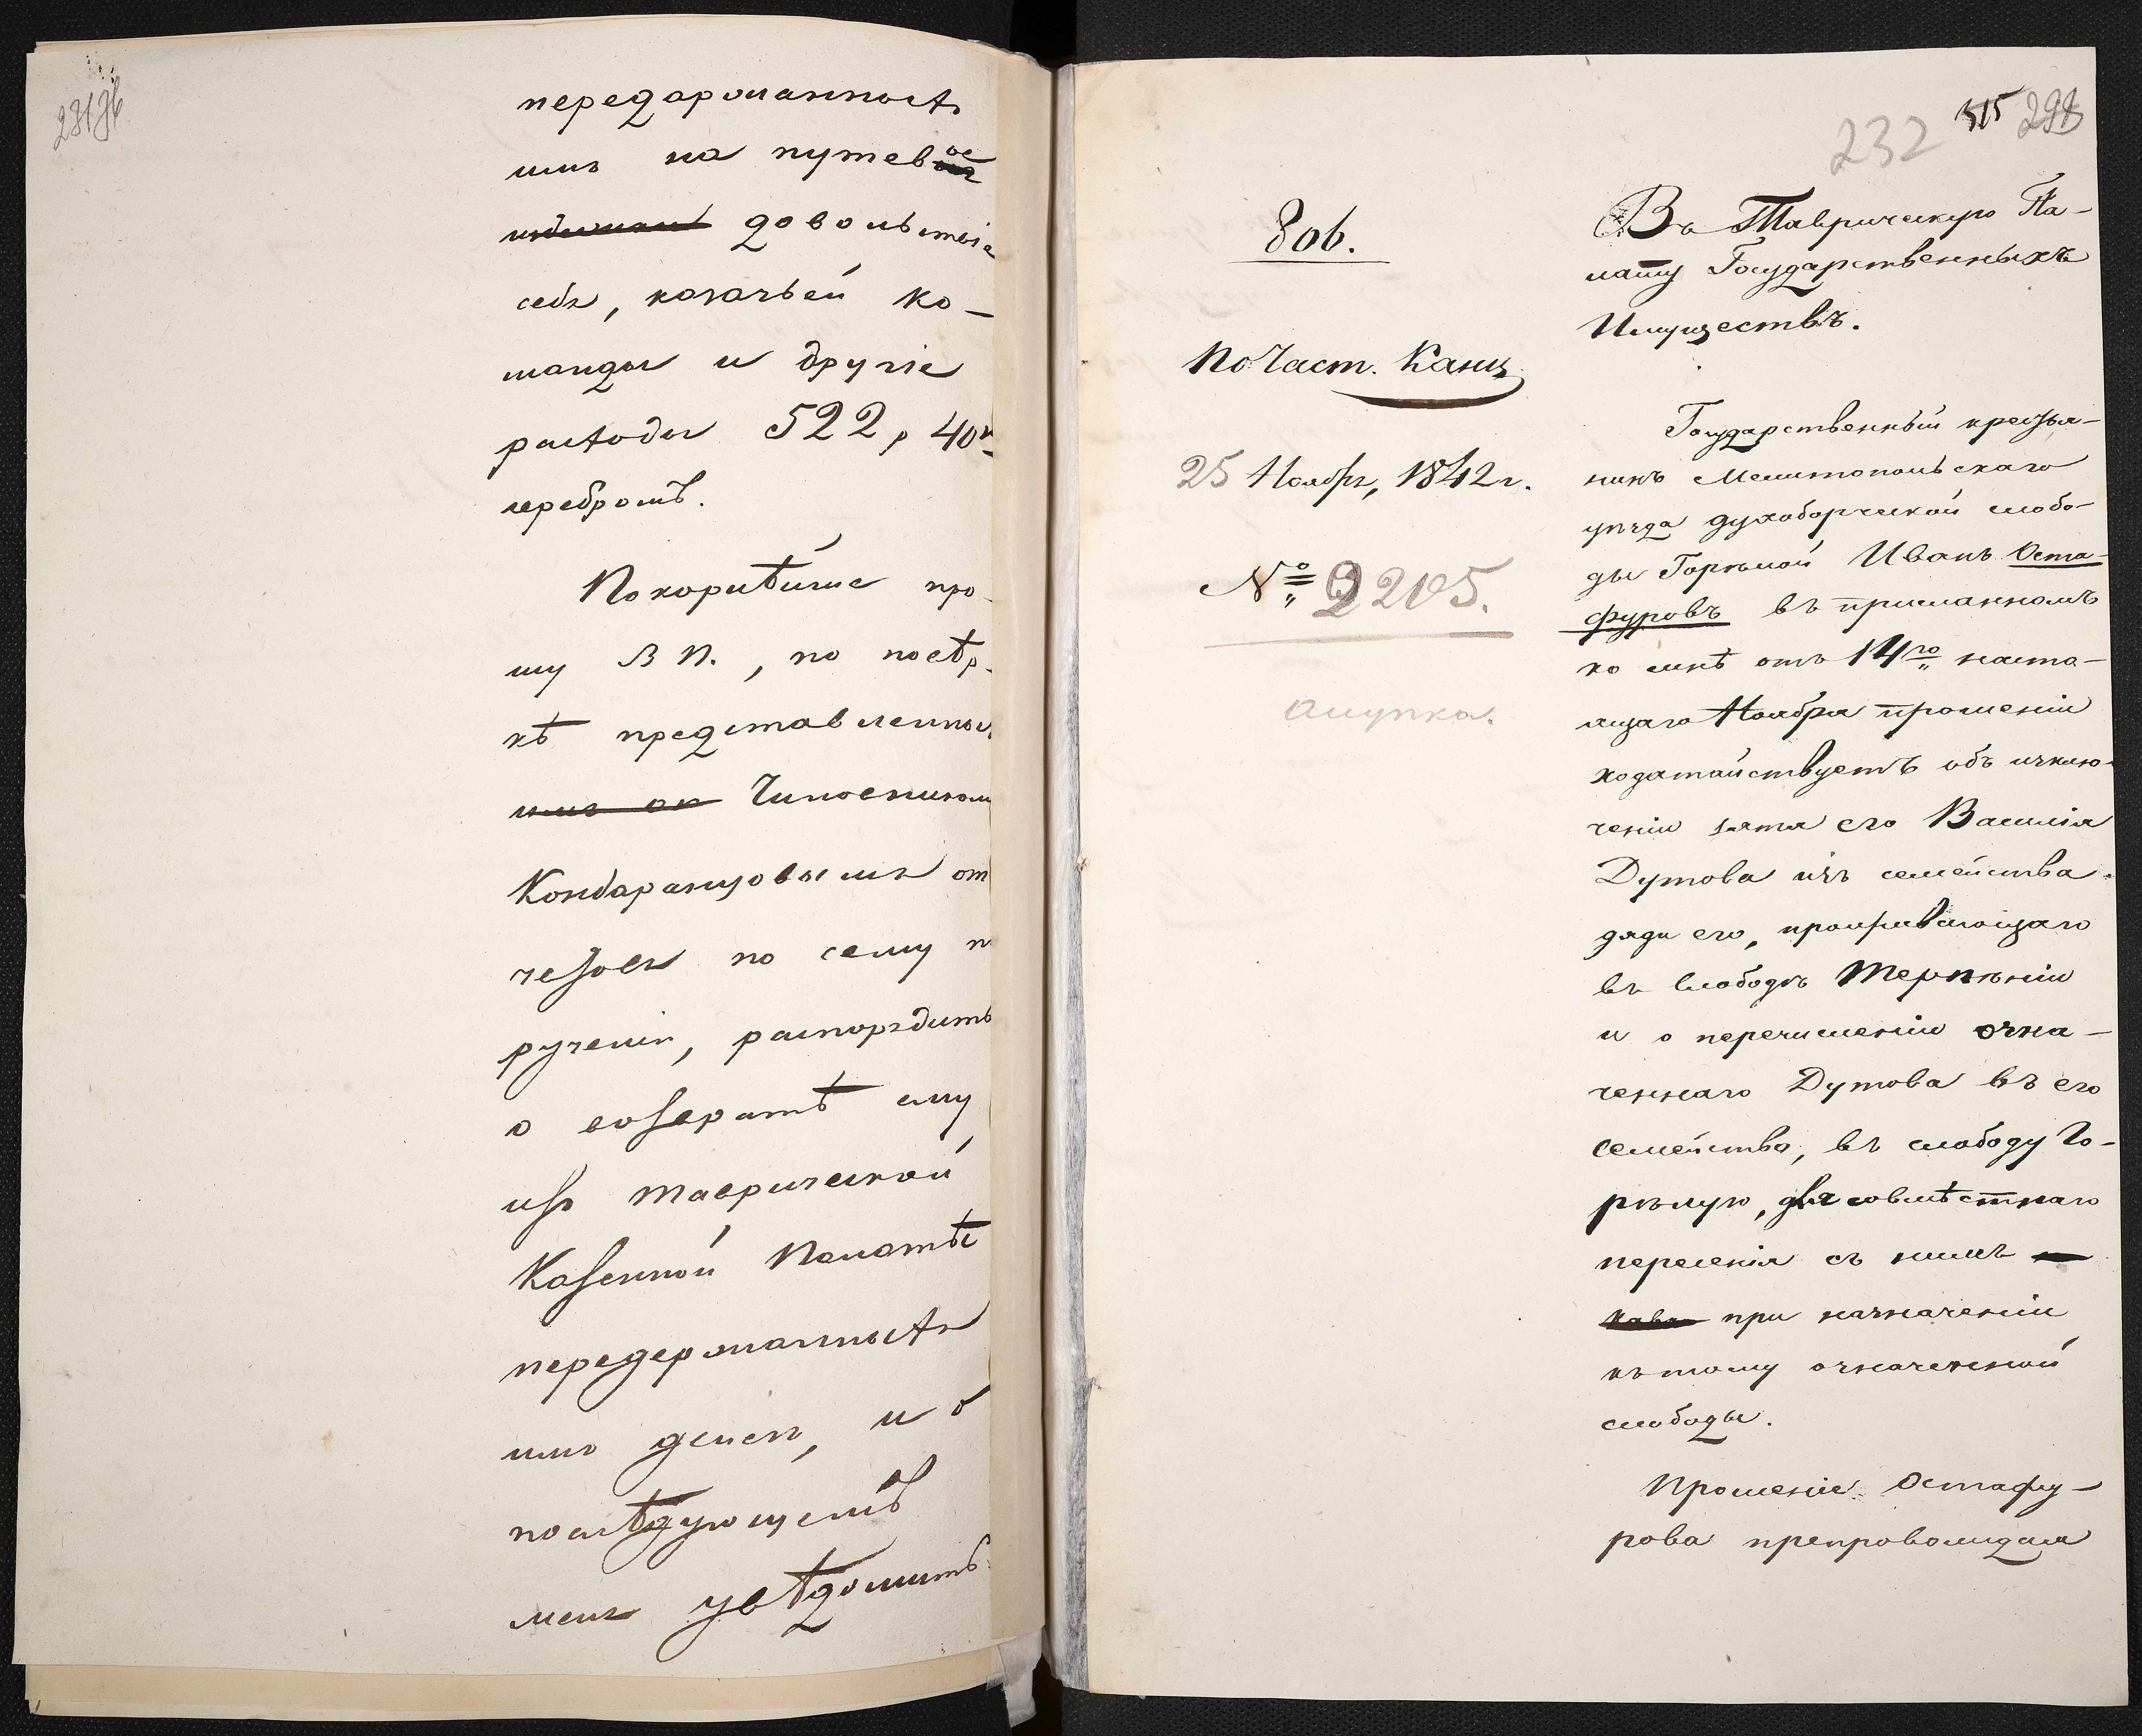 231об
передержанность
имъ на путевое
довольствіе
себя, казачьей ко-
манды и другіе
расходы 522 р 40 к
серебромъ.
Покорнѣйше про-
шу В П., по повѣр-
кѣ представленных
Чиновником
Кондаранцовымъ от
четовъ по сему п
рученію, распорядить
о возвратѣ ему
изъ Таврической
Казенной Палаты
передержанныхъ
имъ денегъ, и о
послѣдующемъ
меня увѣдомить
232 315 298
Въ Таврическую Па-
лату Государственныхъ
Имуществъ.
806.
По Част. Канц.
25 Ноября, 1842 г.
№ 2205.
Алупка.
Государственный крестья-
нинъ Мелитопольскаго
уѣзда духоборческой слобо-
ды Горѣлой Иванъ Оста-
фуровъ въ присланномъ
ко мнѣ отъ 14го наста-
ящаго Ноября прошеніи
ходатайствуетъ объ исклю-
ченіи зятя его Василія
Дутова изъ семейства
дяди его, проживающаго
въ слободѣ Терпѣніи
и о перечисленіи озна-
ченнаго Дутова въ его
семейство, въ слободу Го-
рѣлую, для совмѣстнаго
переселенія съ нимъ
при назначеніи
къ тому означенной
слободы.
Прошеніе Остафу-
рова препровождая